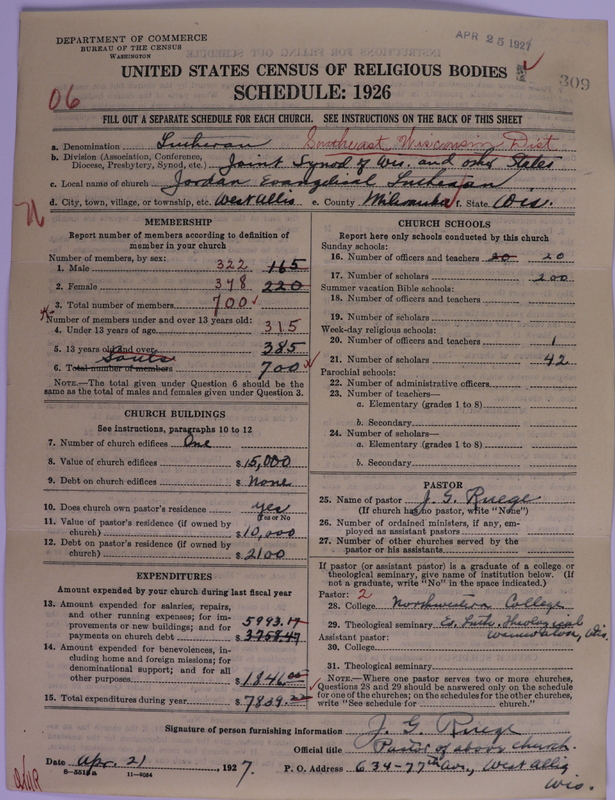 DEPARTMENT OF COMMERCE
BUREAU OF THE CENSUS
WASHINGTON
APR 25 1927
UNITED STATES CENSUS OF RELIGIOUS BODIES
309
06
SCHEDULE: 1926
FILL OUT A SEPARATE SCHEDULE FOR EACH CHURCH. SEE INSTRUCTIONS ON THE BACK OF THIS SHEET
a. Denomination Lutheran Southeast Wisconsin Dist
b. Division (Association, Conference, Diocese, Presbytery, Synod, etc.) Joint Synod of Wis. and other States
c. Local name of church Jordan Evangelical Lutheran
d. City, town, village, or township, etc. West Allis e. County Milwaukee f. State Wis.
MEMBERSHIP
Report number of members according to definition of member in your church
Number of members, by sex:
1. Male 322 165
2. Female 378 220
3. Total number of members 700
Number of members under and over 13 years old:
4. Under 13 years of age 315
5. 13 years old and over 385
Souls
6. Total number of members 700
NOTE.—The total given under Question 6 should be the same as the total of males and females given under Question 3.
CHURCH BUILDINGS
See instructions, paragraphs 10 to 12
7. Number of church edifices One
8. Value of church edifices $ 15,000
9. Debt on church edifices $ None
10. Does church own pastor's residence yes
Yes or No
11. Value of pastor's residence (if owned by church) $ 10,000
12. Debt on pastor's residence (if owned by church) $ 2100
EXPENDITURES
Amount expended by your church during last fiscal year
13. Amount expended for salaries, repairs, and other running expenses; for improvements or new buildings; and for payments on church debt 5993.17 $ 3758.47
14. Amount expended for benevolences, including home and foreign missions; for denominational support; and for all other purposes $ 1846.00
15. Total expenditures during year $ 7839.22
CHURCH SCHOOLS
Report here only schools conducted by this church
Sunday schools:
16. Number of officers and teachers 20 20
17. Number of scholars 200
Summer vacation Bible schools:
18. Number of officers and teachers
19. Number of scholars
Week-day religious schools:
20. Number of officers and teachers 1
21. Number of scholars 42
Parochial schools:
22. Number of administrative officers
23. Number of teachers—
a. Elementary (grades 1 to 8)
b. Secondary
24. Number of scholars—
a. Elementary (grades 1 to 8)
b. Secondary
PASTOR
25. Name of pastor J. G. Ruege
(If church has no pastor, write "None")
26. Number of ordained ministers, if any, employed as assistant pastors
27. Number of other churches served by the pastor or his assistants
If pastor (or assistant pastor) is a graduate of a college or theological seminary, give name of institution below. (If not a graduate, write "No" in the space indicated.)
Pastor: 2
28. College Northwestern College
29. Theological seminary Ev. Luth. Theological
Wauwatosa, Wis.
Assistant pastor:
30. College
31. Theological seminary
NOTE.—Where one pastor serves two or more churches, Questions 28 and 29 should be answered only on the schedule for one of the churches; on the schedules for the other churches, write "See schedule for church."
Signature of person furnishing information J. G. Ruege
Official title Pastor of above church.
Date Apr. 21, 1927.
P. O. Address 634-77th Av., West Allis
Wis.
8-5513a 11-9084